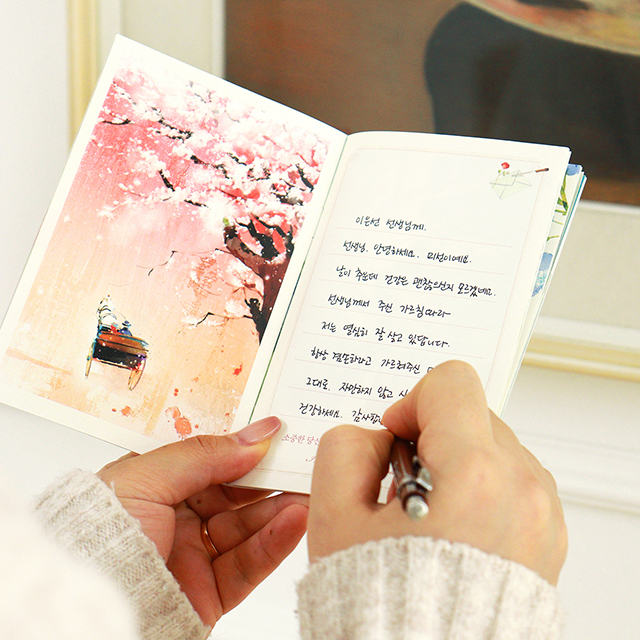 이은선 선생님께.
선생님. 안녕하세요. 미선이예요.
날이 추운데 건강은 괜찮으신지 모르겠네요.
선생님께서 주신 가르침따라
저는 열심히 잘 살고 있답니다.
항상 겸손하라고 가르쳐주신
그대로. 자만하지 않고
건강하세요.
소중한 당신